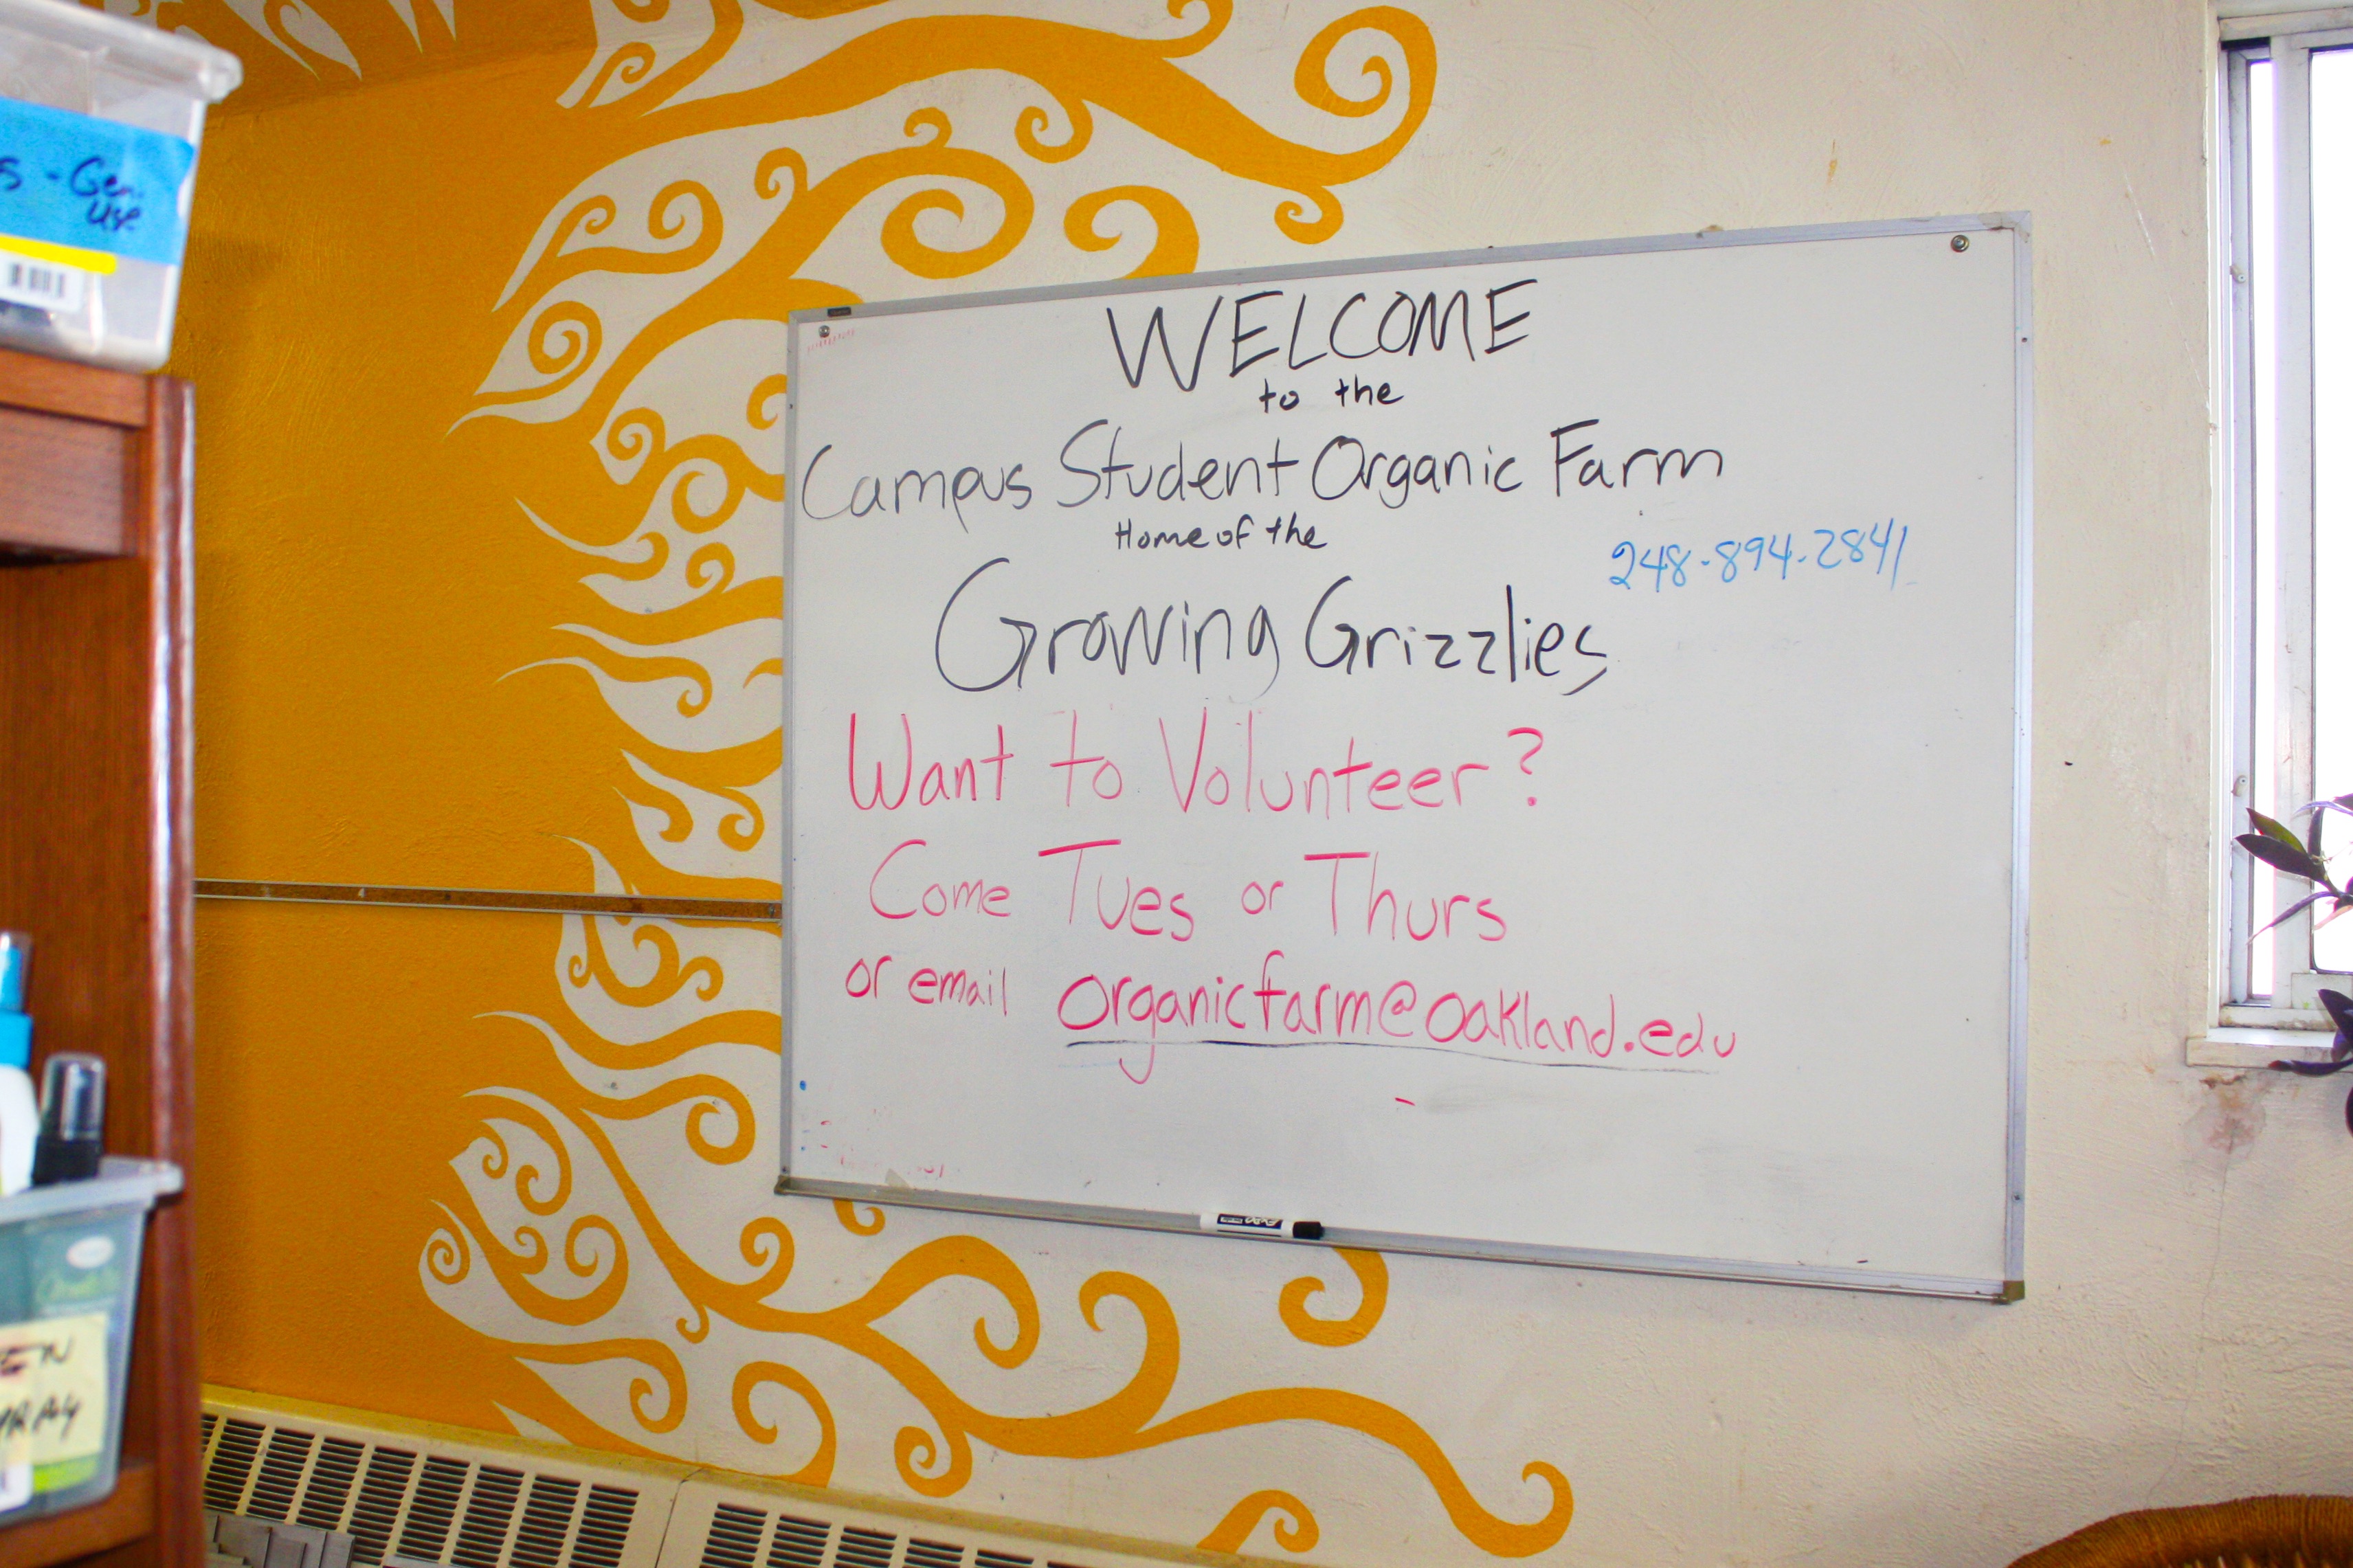 WELCOME
to the
Campus Student Organic Farm
Home of the
Growing Grizzlies
248-894-2841
Want to Volunteer?
Come Tues or Thurs
or email organicfarm@oakland.edu
s - Gen.
use